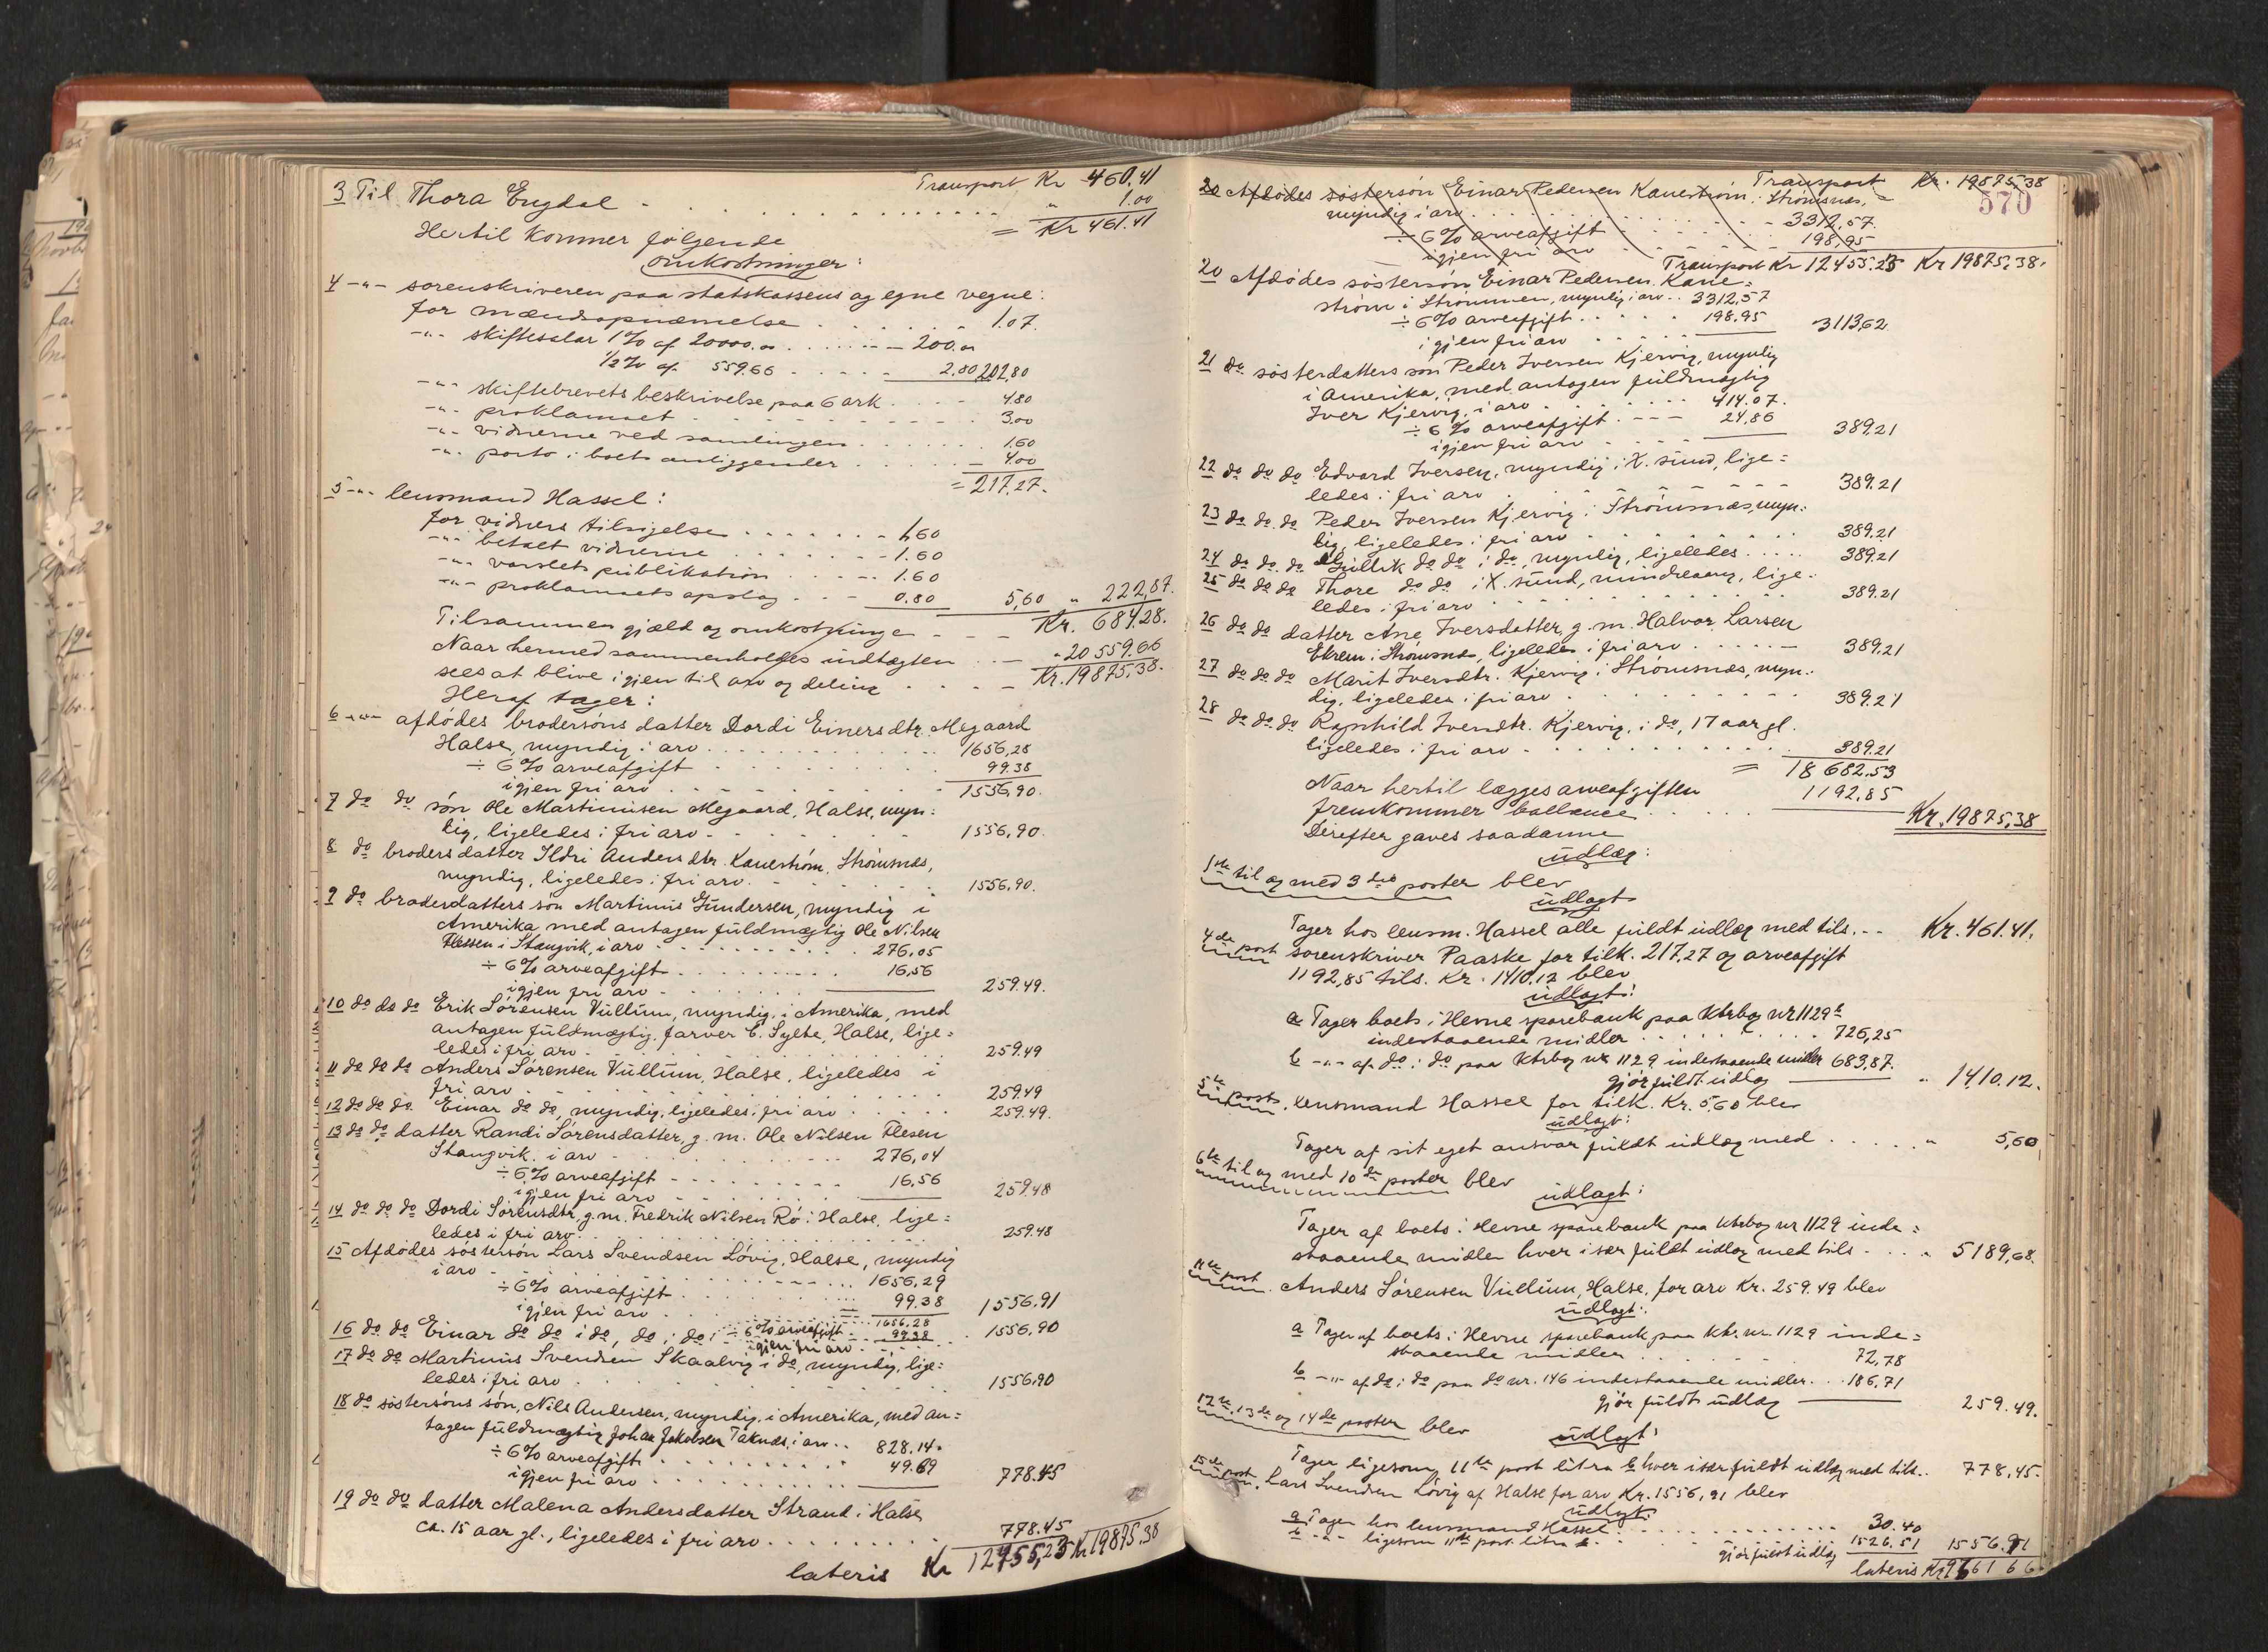 Transport Kr 460.41
3 Til Thora Engdal - . . . . . . . . . " 1.00
= Kr 461.41
Hertil kommer følgende
omkostninger:
4 -"- sorenskriveren paa statskassens og egne vegne:
for mændsopnævnelse . . . . . 1.07.
-"- skiftesalar 1% af 20000.00 . . . . - 200.00
1/2% af 559.66 - . . . - 2,80 202,80
-"- skiftebrevets beskrivelse paa 6 ark . . . 4.80
-"- proklamaet . . . . . . . 3.00
-"- vidnerne ved samlingen . . . . . 1.60
-"- porto i boets anliggender . . . . - 4.00
= 217.27.
5 -"- lensmand Hassel:
for vidners tilsigelse . . . . 1,60
-"- betalt vidnerne . . . . . 1.60
-"- varslets publikation . . . . 1.60
-"- proklamaets opslag . . - 0.80 5,60 " 222,87.
Tilsammen gjæld og omkostninge - - - Kr. 684.28.
Naar hermed sammenholdes indtægten . . - " 20559.66
sees at blive igjen til arv og deling . . . - Kr. 19875,38.
Heraf tager:
6 -"- afdødes brodersøns datter Dordi Einersdtr. Megaard
Halse, myndig i arv . . . . . . 1656,28
÷ 6% arveafgift . . . . . . 99.38
igjen fri arv . . . . . . 1556,90.
7 do do søn Ole Martinusen Megaard, Halse, myn:
dig, ligeledes i fri arv - . . . . 1556,90.
8 do brodersdatter Ildri Andersdtr. Kaneström, Strömsnæs,
myndig, ligeledes i fri arv. . . . . . 1556,90.
9 do brodersdatters søn Martinus Gundersen, myndig i
Amerika med antagen fuldmægtig Ole Nilsen
Flessen i Stangvik, i arv . . . . . 276,05
÷ 6% arveafgift . . . . . . 16,56
igjen fri arv . . . . . 259.49.
10 do do do Erik Sørensen Vullum, myndig, i Amerika, med
antagen fuldmægtig, farver E. Sylte, Halse, lige=
ledes i fri arv . . . . . . . 259.49
11 do do do Anders Sørensen Vullum, Halse, ligeledes i
fri arv . . . . . . . . 259.49
12 do do do Einar do do, myndig, ligeledes i fri arv . . . 259.49.
13 do do datter Randi Sørensdatter, g. m. Ole Nilsen Flesen
Stangvik. i arv . . . . . . 276,04
÷ 6% arveafgift - . . . . . 16,56
igjen fri arv - . . . . 259.48
14 do do do Dordi Sørensdtr, g. m. Fredrik Nilsen Rø i Halse, lige=
ledes i fri arv . . . . . . 259.48
15 Afdødes søstersøn Lars Svendsen Lövig, Halse, myndig
i arv - . . . . . . 1656,29
÷ 6% arveafgift . . . . . . 99.38
igjen fri arv . . . . = 1556.91
16 do do Einar do do i do, do i do: 1656.28 ÷ 6% arveafgift 99.38 igjen fri arv . . 1556,90
17 do do Martinus Svendsen Skaalvig i do, myndig, lige:
ledes i fri arv . . . . . . . 1556.90
18 do søstersøns søn, Nils Andersen, myndig, i Amerika, med an=
tagen fuldmægtig Johan Jakobsen Taknæs, i arv . . 828.14.
÷ 6% arveafgift . . . . . . 49.69
igjen fri arv . . . . . 778.45
19 do do datter Malena Andersdatter Strand i Halse
ca. 15 aar gl., ligeledes i fri arv . . . . . 778.45
lateris Kr 12455,23 Kr 19875.38
Transport Kr. 19875,38
570
20 Afdødes søstersøn Einar Pedersen Kaneström, Strömsnæs,
myndig i arv . . . . . - 3312,57.
÷ 6% arveafgift . . . . . 198,95
igjen fri arv
Transport Kr 12455.23 Kr 19875,38.
20 Afdödes söstersön Einar Pedersen Kane=
ström i Strömmen, myndig i arv . . 3312,57
÷ 6% arveafgift . . . . . 198.95
igjen fri arv . . . . 3113,62
21 do søsterdatters søn Peder Iversen Kjervig, myndig
i Amerika, med antagen fuldmægtig
Iver Kjervig, i arv . . . . . 414.07.
÷ 6% arveafgift . - - - 24,86
igjen fri arv . . . . 389.21
22 do do do Edvard Iversen, myndig i X.sund, lige=
ledes i fri arv . . . . . . 389.21
23 do do do Peder Iversen Kjervig i Strömsnæs, myn:
dig, ligeledes i fri arv . . . . . 389.21
24 do do do Gullik do do i do, myndig, ligeledes . . . . 389.21
25 do do do Thore do do i X.sund, mindreaarig, lige:
ledes i fri arv . . . . . . 389.21
26 do do datter Ane Iversdatter, g. m. Halvor Larsen
Ekrem i Strömsnæs, ligeledes i fri arv . . . . - 389.21
27 do do do Marit Iversdtr. Kjervig i Strömsnæs, myn:
dig, ligeledes i fri arv . . . . . 389.21
28 do do do Ragnhild Iversdtr. Kjervig, i do, 17 aar gl.
ligeledes i fri arv - . . . . . 389.21
= 18682.53
Naar hertil lægges arveafgiften 1192,85
fremkommer ballance . . . . Kr. 19875,38
Derefter gaves saadanne
udlæg:
1ste til og med 3die poster blev
udlagt
Tager hos lensm. Hassel alle fuldt udlæg med tils. - - Kr. 461.41.
4de post sorenskriver Paaske for tilk. 217,27 og arveafgift
1192,85 tils. Kr. 1410.12 blev
udlagt:
a Tager boets i Hevne sparebank paa Ktrbog nr 1129
indestaaende midler . . . . . . 726,25
b -"- af do i do paa Ktrbog nr 1129 indestaaende midler 683,87.
gjør fuldt udlæg " 1410.12.
5te posts, lensmand Hassel for tilk. Kr. 5,60 blev
udlagt:
Tager af sit eget ansvar fuldt udlæg med . . . . . " 5,60
6te til og med 10de poster blev
udlagt:
Tager af boets i Hevne sparebank paa ktrbog nr 1129 inde=
staaende midler hver især fuldt udlæg med tils - . . . 5189,68.
11te post. Anders Sørensen Vullum, Halse, for arv Kr. 259.49 blev
udlagt:
a Tager af boets i Hevne sparebank paa ktr. nr. 1129 inde=
staaende midler . . . . . . 72,78
b -"- af do i do paa do nr. 146 indestaaende midler . . . 186,71
gjør fuldt udlæg 259.49.
12te, 13de og 14de poster blev
udlagt:
Tager ligesom 11te post litra b hver især fuldt udlæg med tils. . 778,45.
15de post, Lars Svendsen Lövig af Halse for arv Kr. 1556,91 blev
udlagt:
a Tager hos lensmand Hassel . . . . . . . 30.40
b -"- ligesom 11te post litra b . . . . . 1526.51 1556.91
gjør fuldt udlæg
lateris Kr 9661 66